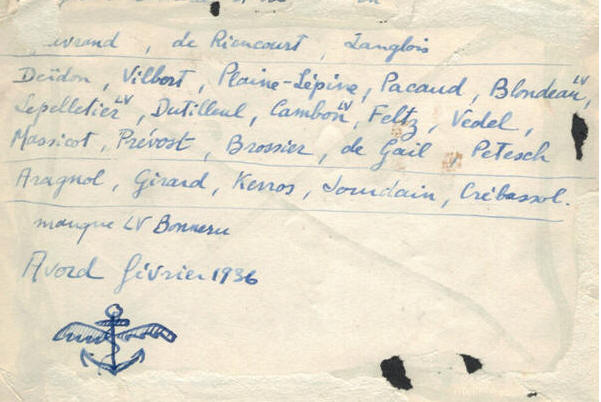 de Riencourt, Langlois
Deïdon, Vilbort, Plaine-Lépine, Pacaud, Blondeau LV,
Lepelletier LV, Dutilleul, Cambon LV, Feltz, Vedel,
Massicot, Prévost, Brossier, de Gail, Petesch
Aragnol, Girard, Kerros, Jourdain, Crébassol.
manque LV Bonneru
Avord février 1936